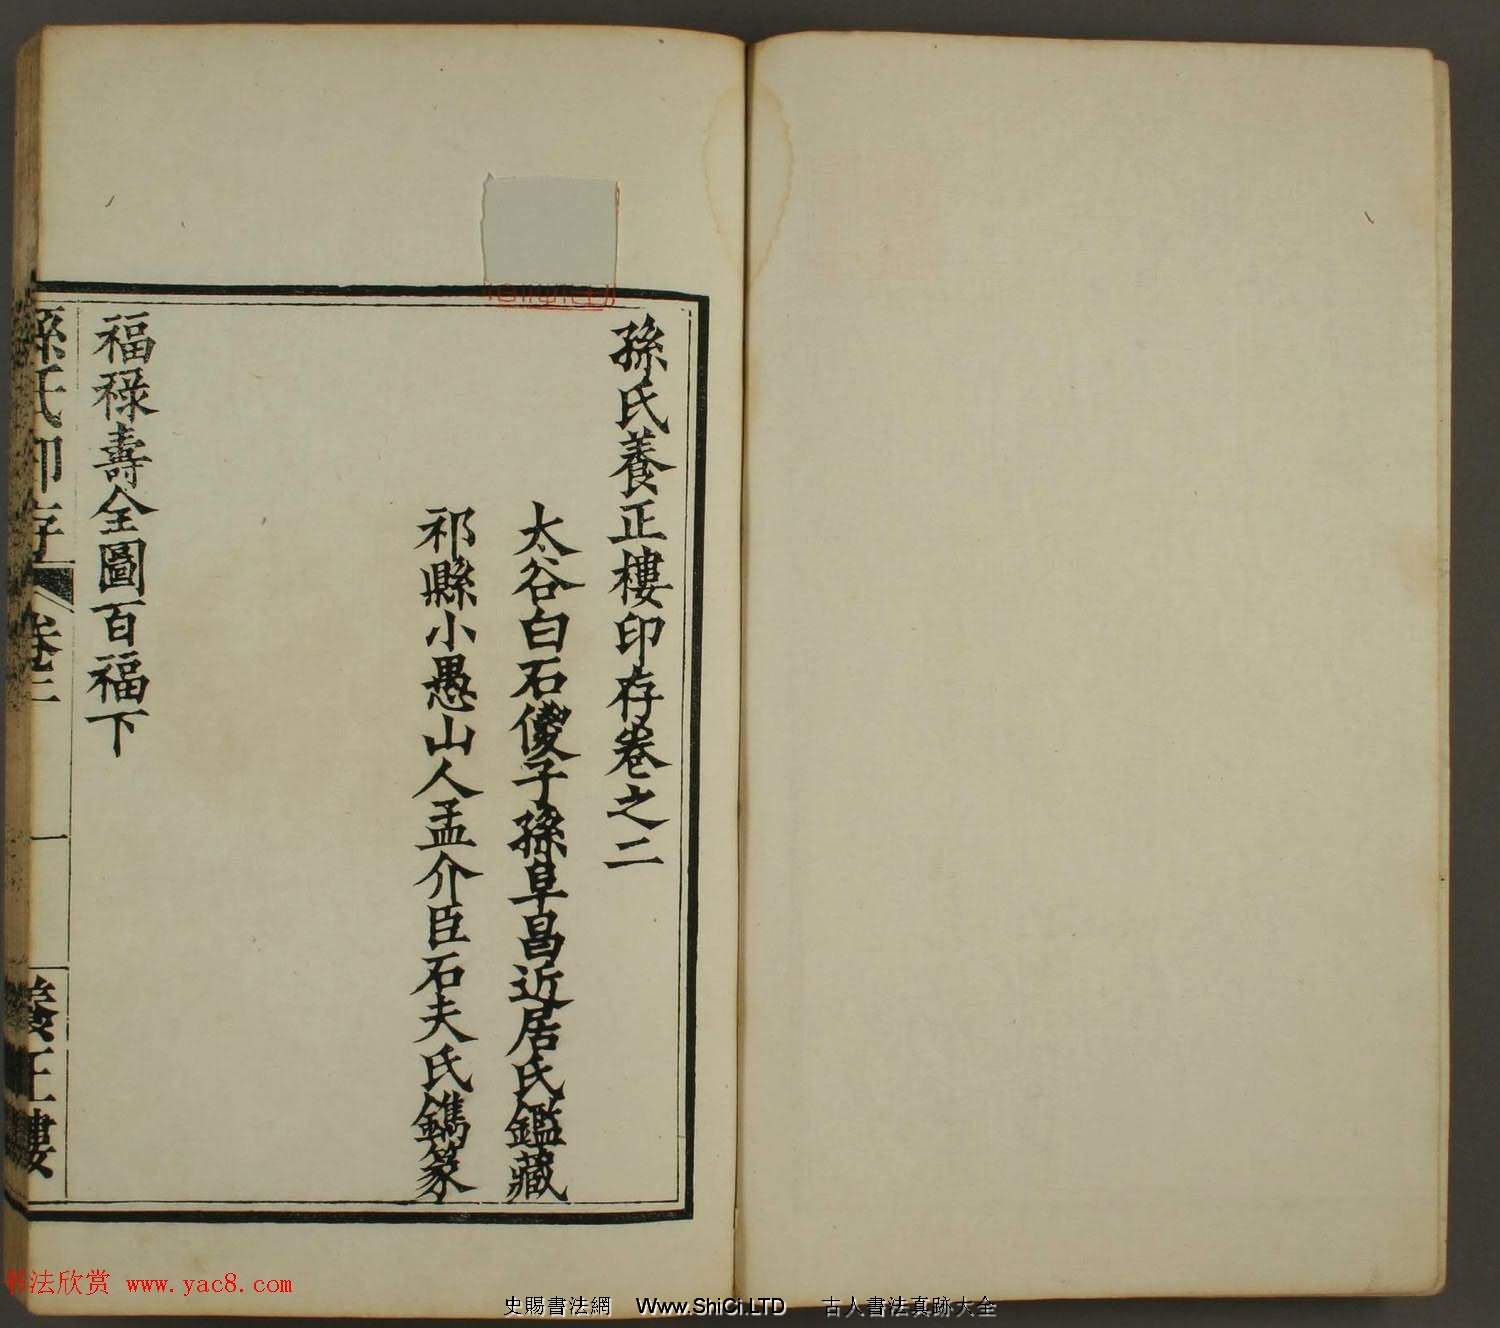 孫氏養正樓印存卷之二
太谷白石傻子孫阜昌近居氏鑑藏
祁縣小愚山人孟介臣石夫氏鐫篆
福祿壽全圖百福下
孫氏印存
卷二
一
養正樓
书法欣赏 www.yac8.com
史賜書法網 Www.ShiCi.LTD 古人書法真跡大全